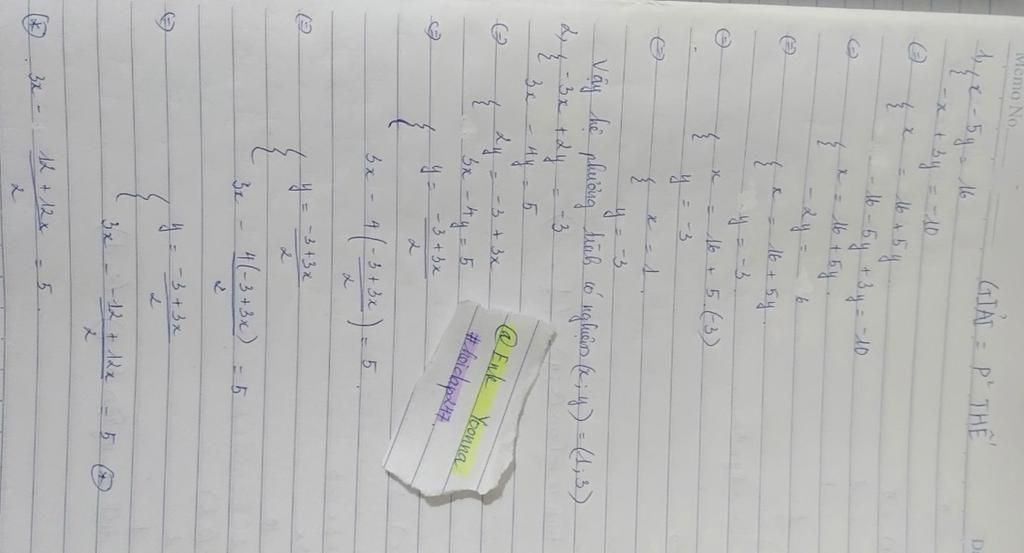 Memo No.
GIẢI = P² THẾ
1, { x - 5y = 16
-x + 3y = -10
(=) { x = 16 + 5y
-16 - 5y + 3y = -10
(=) { x = 16 + 5y
-2y = 6
(=) { x = 16 + 5y.
y = -3.
(=) { x = 16 + 5.(-3)
y = -3
(=) { x = 1.
y = -3
Vậy hệ phương trình có nghiệm (x; y) = (1; 3)
2, { -3x + 2y = -3
3x - 4y = 5
(=) { 2y = -3 + 3x
3x - 4y = 5
(=) { y = \frac{-3 + 3x}{2}
3x - 4(\frac{-3 + 3x}{2}) = 5.
(=) { y = \frac{-3 + 3x}{2}
3x - \frac{4(-3 + 3x)}{2} = 5
(=) { y = \frac{-3 + 3x}{2}
3x - \frac{-12 + 12x}{2} = 5 (*)
(*). 3x - \frac{12 + 12x}{2} = 5.
@ Enk Yoanna
#hoidap247.